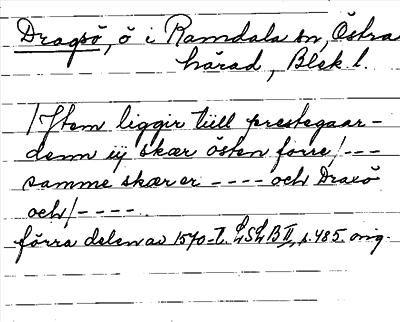 Dragsö, ö i Ramdala sn, Östra
härad, Blek. l.
/Jtem liggir tüll prestegaar-
denn iij skær östen forre/---
samme skær er ---- och Draxö
och/----.
förra delen av 1570-t. LSLB II, s. 485. orig.